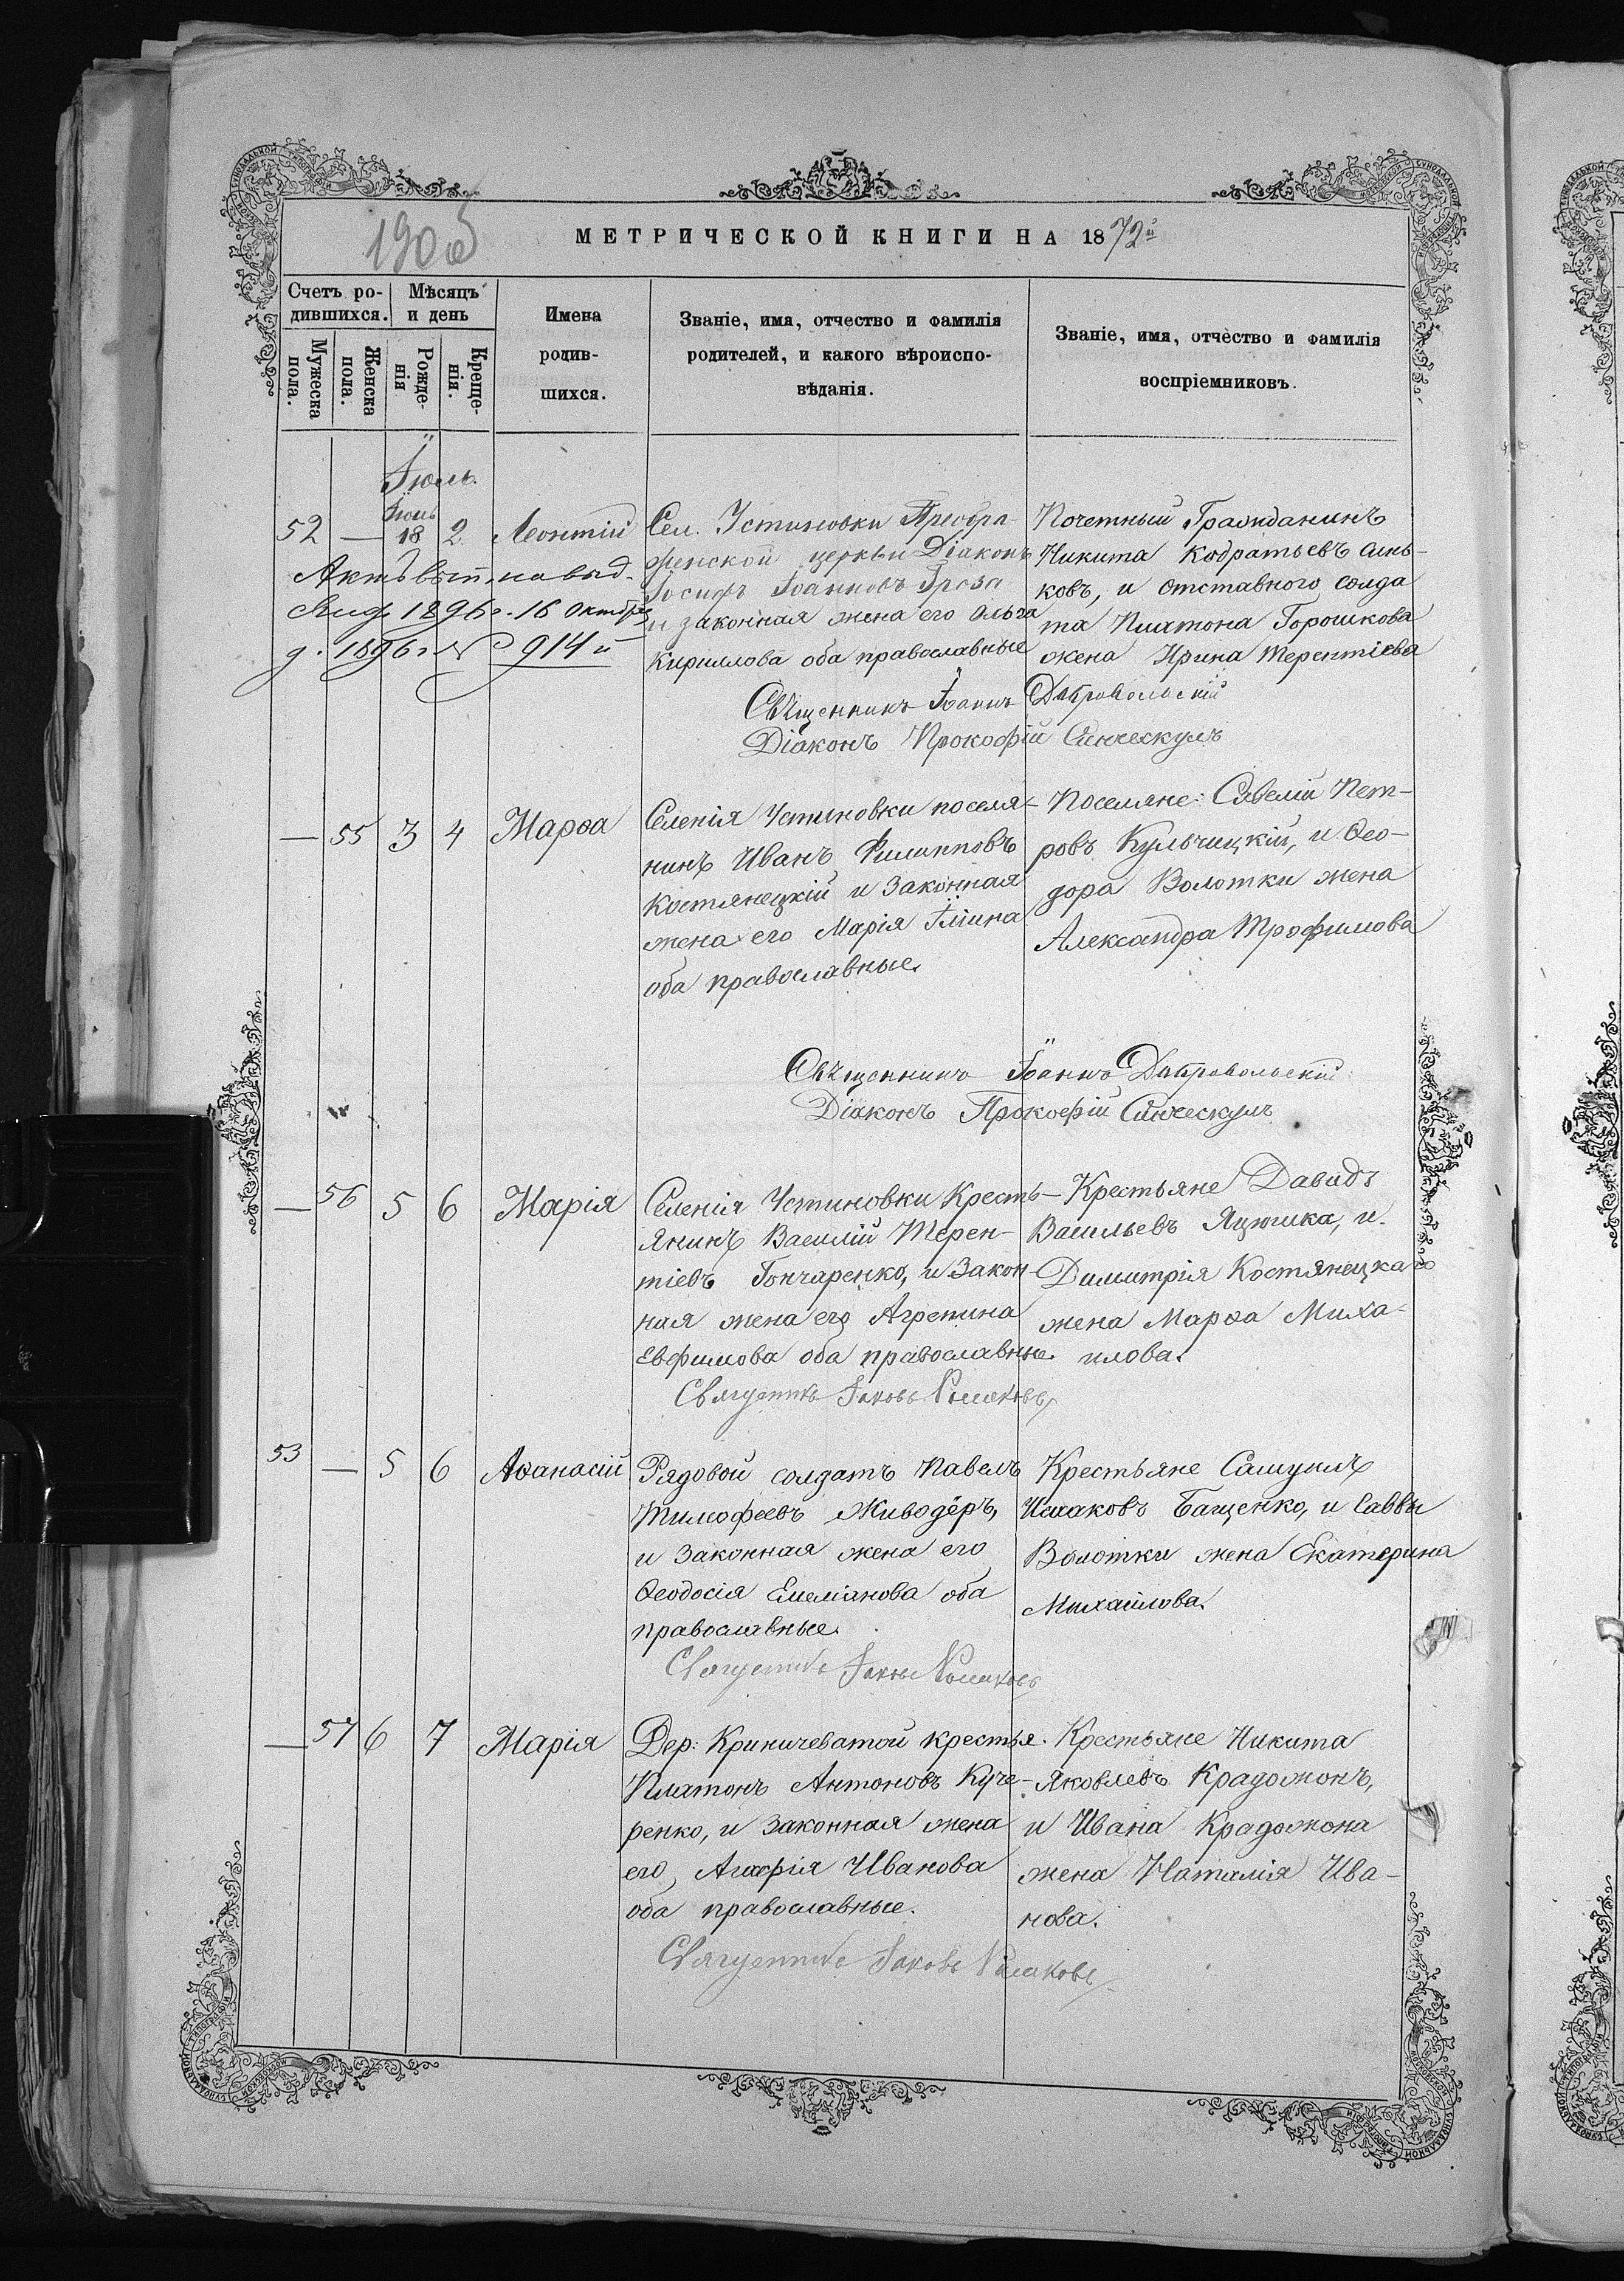 190 об
МЕТРИЧЕСКОЙ КНИГИ НА 1872й
Счетъ ро-
дившихся.
Мѣсяцъ
и день
Мужеска
пола.
Женска
пола.
Рожде-
нія
Креще-
нія.
Имена
родив-
шихся.
Званіе, имя, отчество и фамилія
родителей, и какого вѣроиспо-
вѣданія.
Званіе, имя, отчество и фамилія
воспріемниковъ.
Іюль.
52 — Іюнь 18 2 Леонтій
Актъ выд.
1896 г. 16 Октября
1896 г. № 914й
Сел. Устиновки Преобра-
женской церкви Діаконъ
Іосифъ Іоанновъ Гроза
и законная жена его Ольга
Кириллова оба православные
Почетный Гражданинъ
Никита Кодратьевъ Синь-
ковъ, и отставного солда
та Платона Горошкова
жена Ирина Терентіева
Священникъ Іоаннъ Добровольскій
Діаконъ Прокофій Синческулъ
— 55 3 4 Марѳа
Селенія Устиновки поселя-
нинъ Иванъ Филипповъ
Костянецкій и законная
жена его Марія Іліина
оба православные.
Поселяне: Савелій Пет-
ровъ Кульчицкій, и Ѳео-
дора Волотки жена
Александра Трофимова
Священникъ Іоаннъ Добровольскій
Діаконъ Прокофій Синческулъ
— 56 5 6 Марія
Селенія Устиновки Кресть-
янинъ Василій Терен-
тіевъ Гончаренко, и закон-
ная жена его Агрепина
Евфимова оба православные.
Крестьяне Давидъ
Васильевъ Яцюика, и
Димитрія Костянецкаго
жена Марѳа Миха-
илова.
Священникъ Іаковъ
53 — 5 6 Аѳанасій
Рядовой солдатъ Павелъ
Тимофеевъ Живодёръ,
и законная жена его
Ѳеодосія Емеліанова оба
православные.
Крестьяне Самуилъ
Исааковъ Бащенко, и Саввы
Волотки жена Екатерина
Михайлова.
Священникъ Іаковъ
— 57 6 7 Марія
Дер: Криничеватой крестья.
Платонъ Антоновъ Куче-
ренко, и законная жена
его, Агафія Иванова
оба православные.
Крестьяне Никита
Яковлевъ Крадожонъ,
и Ивана Крадожона
жена Наталія Ива-
нова.
Священникъ Іаковъ